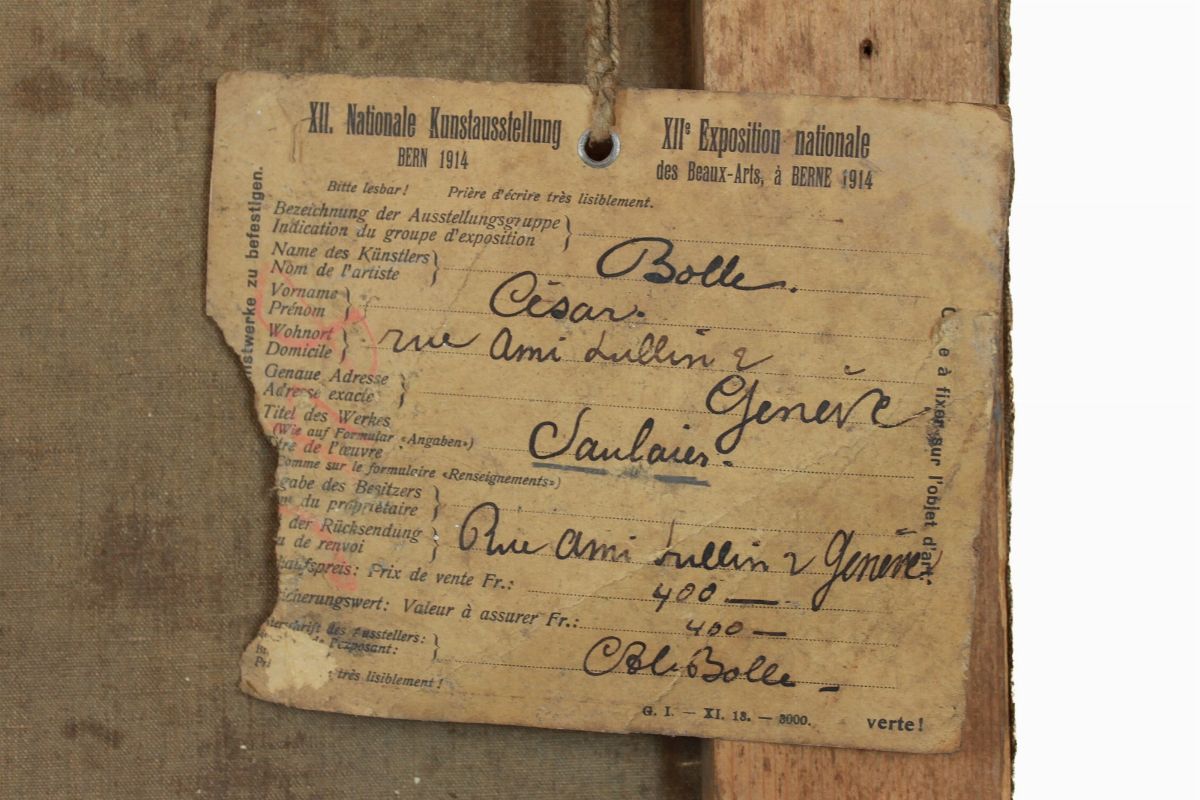 XII. Nationale Kunstausstellung
BERN 1914
XIIe Exposition nationale
des Beaux-Arts, à BERNE 1914
Bitte lesbar! Prière d'écrire très lisiblement.
Bezeichnung der Ausstellungsgruppe
Indication du groupe d'exposition
Name des Künstlers
Nom de l'artiste
Bolle.
Vorname
Prénom
César.
Wohnort
Domicile
rue Ami Lullin 2
Genaue Adresse
Adresse exacte
Genève
Titel des Werkes
(Wie auf Formular «Angaben»)
Titre de l'œuvre
Comme sur le formuloire «Renseignements»)
Saulaies.
gabe des Besitzers
du propriétaire
der Rücksendung
de renvoi
Rue Ami Lullin 2 Genève
aufspreis: Prix de vente Fr.:
400 —
icherungswert: Valeur à assurer Fr.:
400 —
des Ausstellers:
l'exposant:
Bolle —
très lisiblement!
G. I. — XI. 13. — 3000.
verte!
nstwerke zu befestigen.
e à fixer sur l'objet d'art.